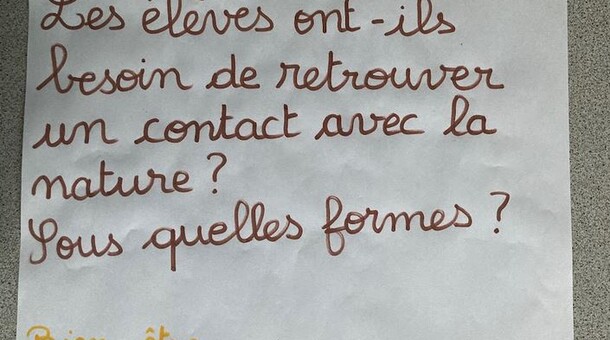 Les élèves ont-ils
besoin de retrouver
un contact avec la
nature ?
Sous quelles formes ?